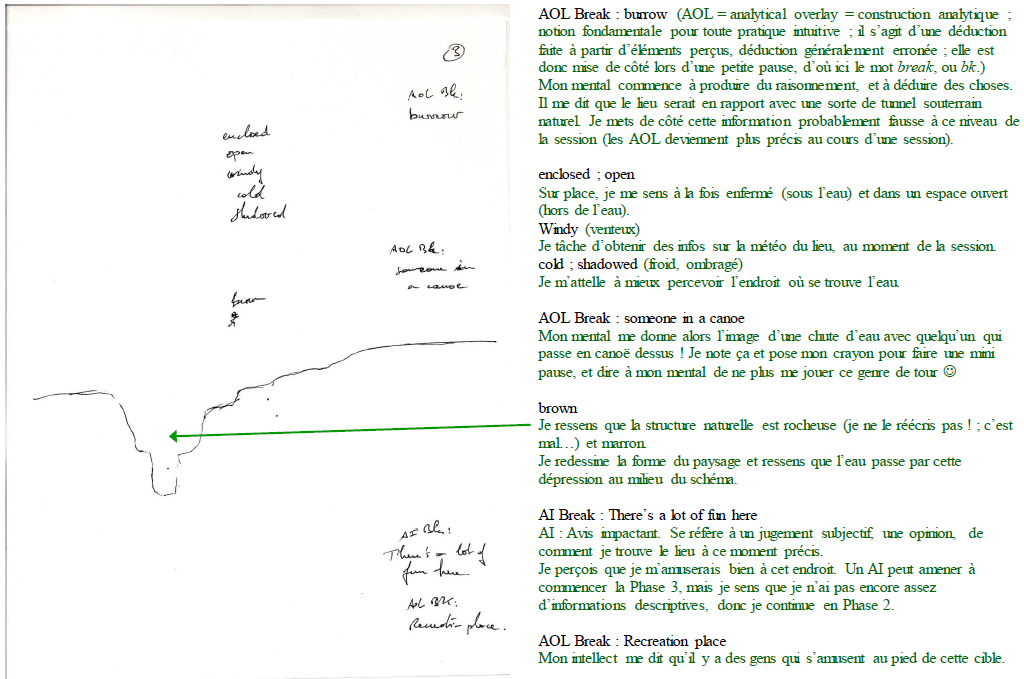 3
AOL Bk:
burrow
enclosed
open
windy
cold
shadowed
AOL Bk:
someone in
a canoe
brown
AI Bk:
There's a lot of
fun here.
AOL BK:
Recreation place.
AOL Break : burrow (AOL = analytical overlay = construction analytique ;
notion fondamentale pour toute pratique intuitive ; il s’agit d’une déduction
faite à partir d’éléments perçus, déduction généralement erronée ; elle est
donc mise de côté lors d’une petite pause, d’où ici le mot break, ou bk.)
Mon mental commence à produire du raisonnement, et à déduire des choses.
Il me dit que le lieu serait en rapport avec une sorte de tunnel souterrain
naturel. Je mets de côté cette information probablement fausse à ce niveau de
la session (les AOL deviennent plus précis au cours d’une session).
enclosed ; open
Sur place, je me sens à la fois enfermé (sous l’eau) et dans un espace ouvert
(hors de l’eau).
Windy (venteux)
Je tâche d’obtenir des infos sur la météo du lieu, au moment de la session.
cold ; shadowed (froid, ombragé)
Je m’attelle à mieux percevoir l’endroit où se trouve l’eau.
AOL Break : someone in a canoe
Mon mental me donne alors l’image d’une chute d’eau avec quelqu’un qui
passe en canoë dessus ! Je note ça et pose mon crayon pour faire une mini
pause, et dire à mon mental de ne plus me jouer ce genre de tour ☺
brown
Je ressens que la structure naturelle est rocheuse (je ne le réécris pas ! ; c’est
mal…) et marron.
Je redessine la forme du paysage et ressens que l’eau passe par cette
dépression au milieu du schéma.
AI Break : There’s a lot of fun here
AI : Avis impactant. Se réfère à un jugement subjectif, une opinion, de
comment je trouve le lieu à ce moment précis.
Je perçois que je m’amuserais bien à cet endroit. Un AI peut amener à
commencer la Phase 3, mais je sens que je n’ai pas encore assez
d’informations descriptives, donc je continue en Phase 2.
AOL Break : Recreation place
Mon intellect me dit qu’il y a des gens qui s’amusent au pied de cette cible.